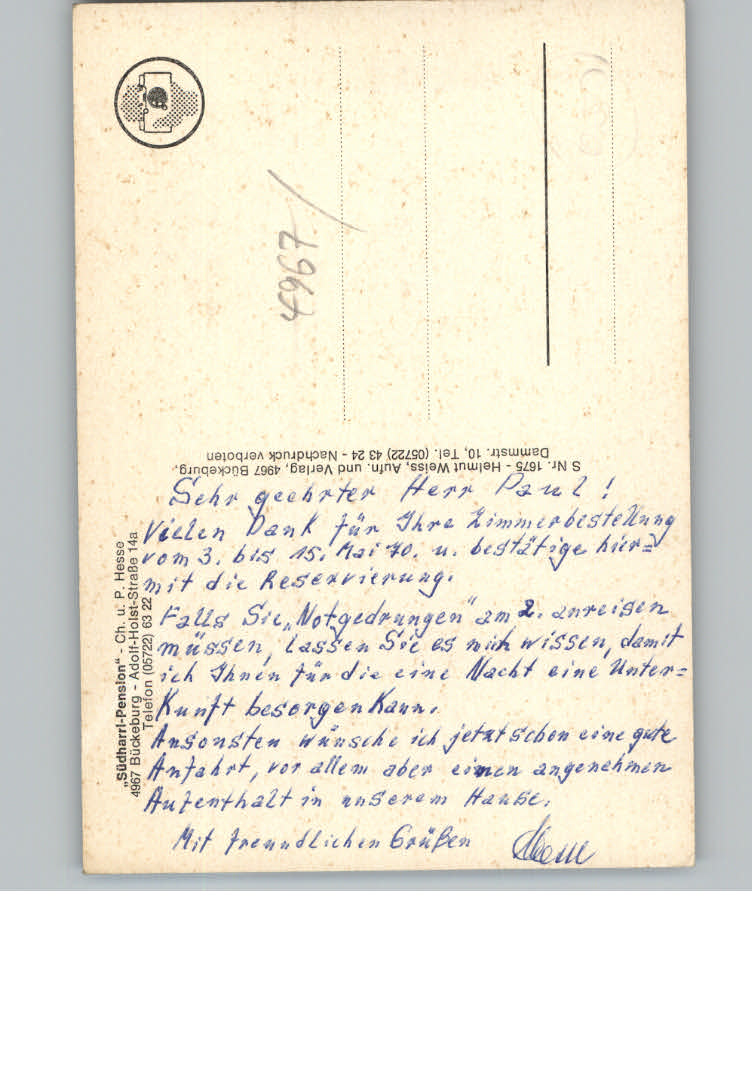 4967
S Nr. 1675 - Helmut Weiss, Aufn. und Verlag, 4967 Bückeburg,
Dammstr. 10, Tel. (05722) 43 24 - Nachdruck verboten
„Südharrl-Pension“ - Ch. u. P. Hesse
4967 Bückeburg - Adolf-Holst-Straße 14a
Telefon (05722) 63 22
Sehr geehrter Herr Paul!
Vielen Dank für Ihre Zimmerbestellung
vom 3. bis 15. Mai 70. u. bestätige hier=
mit die Reservierung.
Falls Sie „Notgedrungen“ am 2. anreisen
müssen, lassen Sie es mich wissen, damit
ich Ihnen für die eine Nacht eine Unter=
Kunft besorgen Kann.
Ansonsten wünsche ich jetzt schon eine gute
Anfahrt, vor allem aber einen angenehmen
Aufenthalt in unserem Hause.
Mit freundlichen Grüßen Hesse